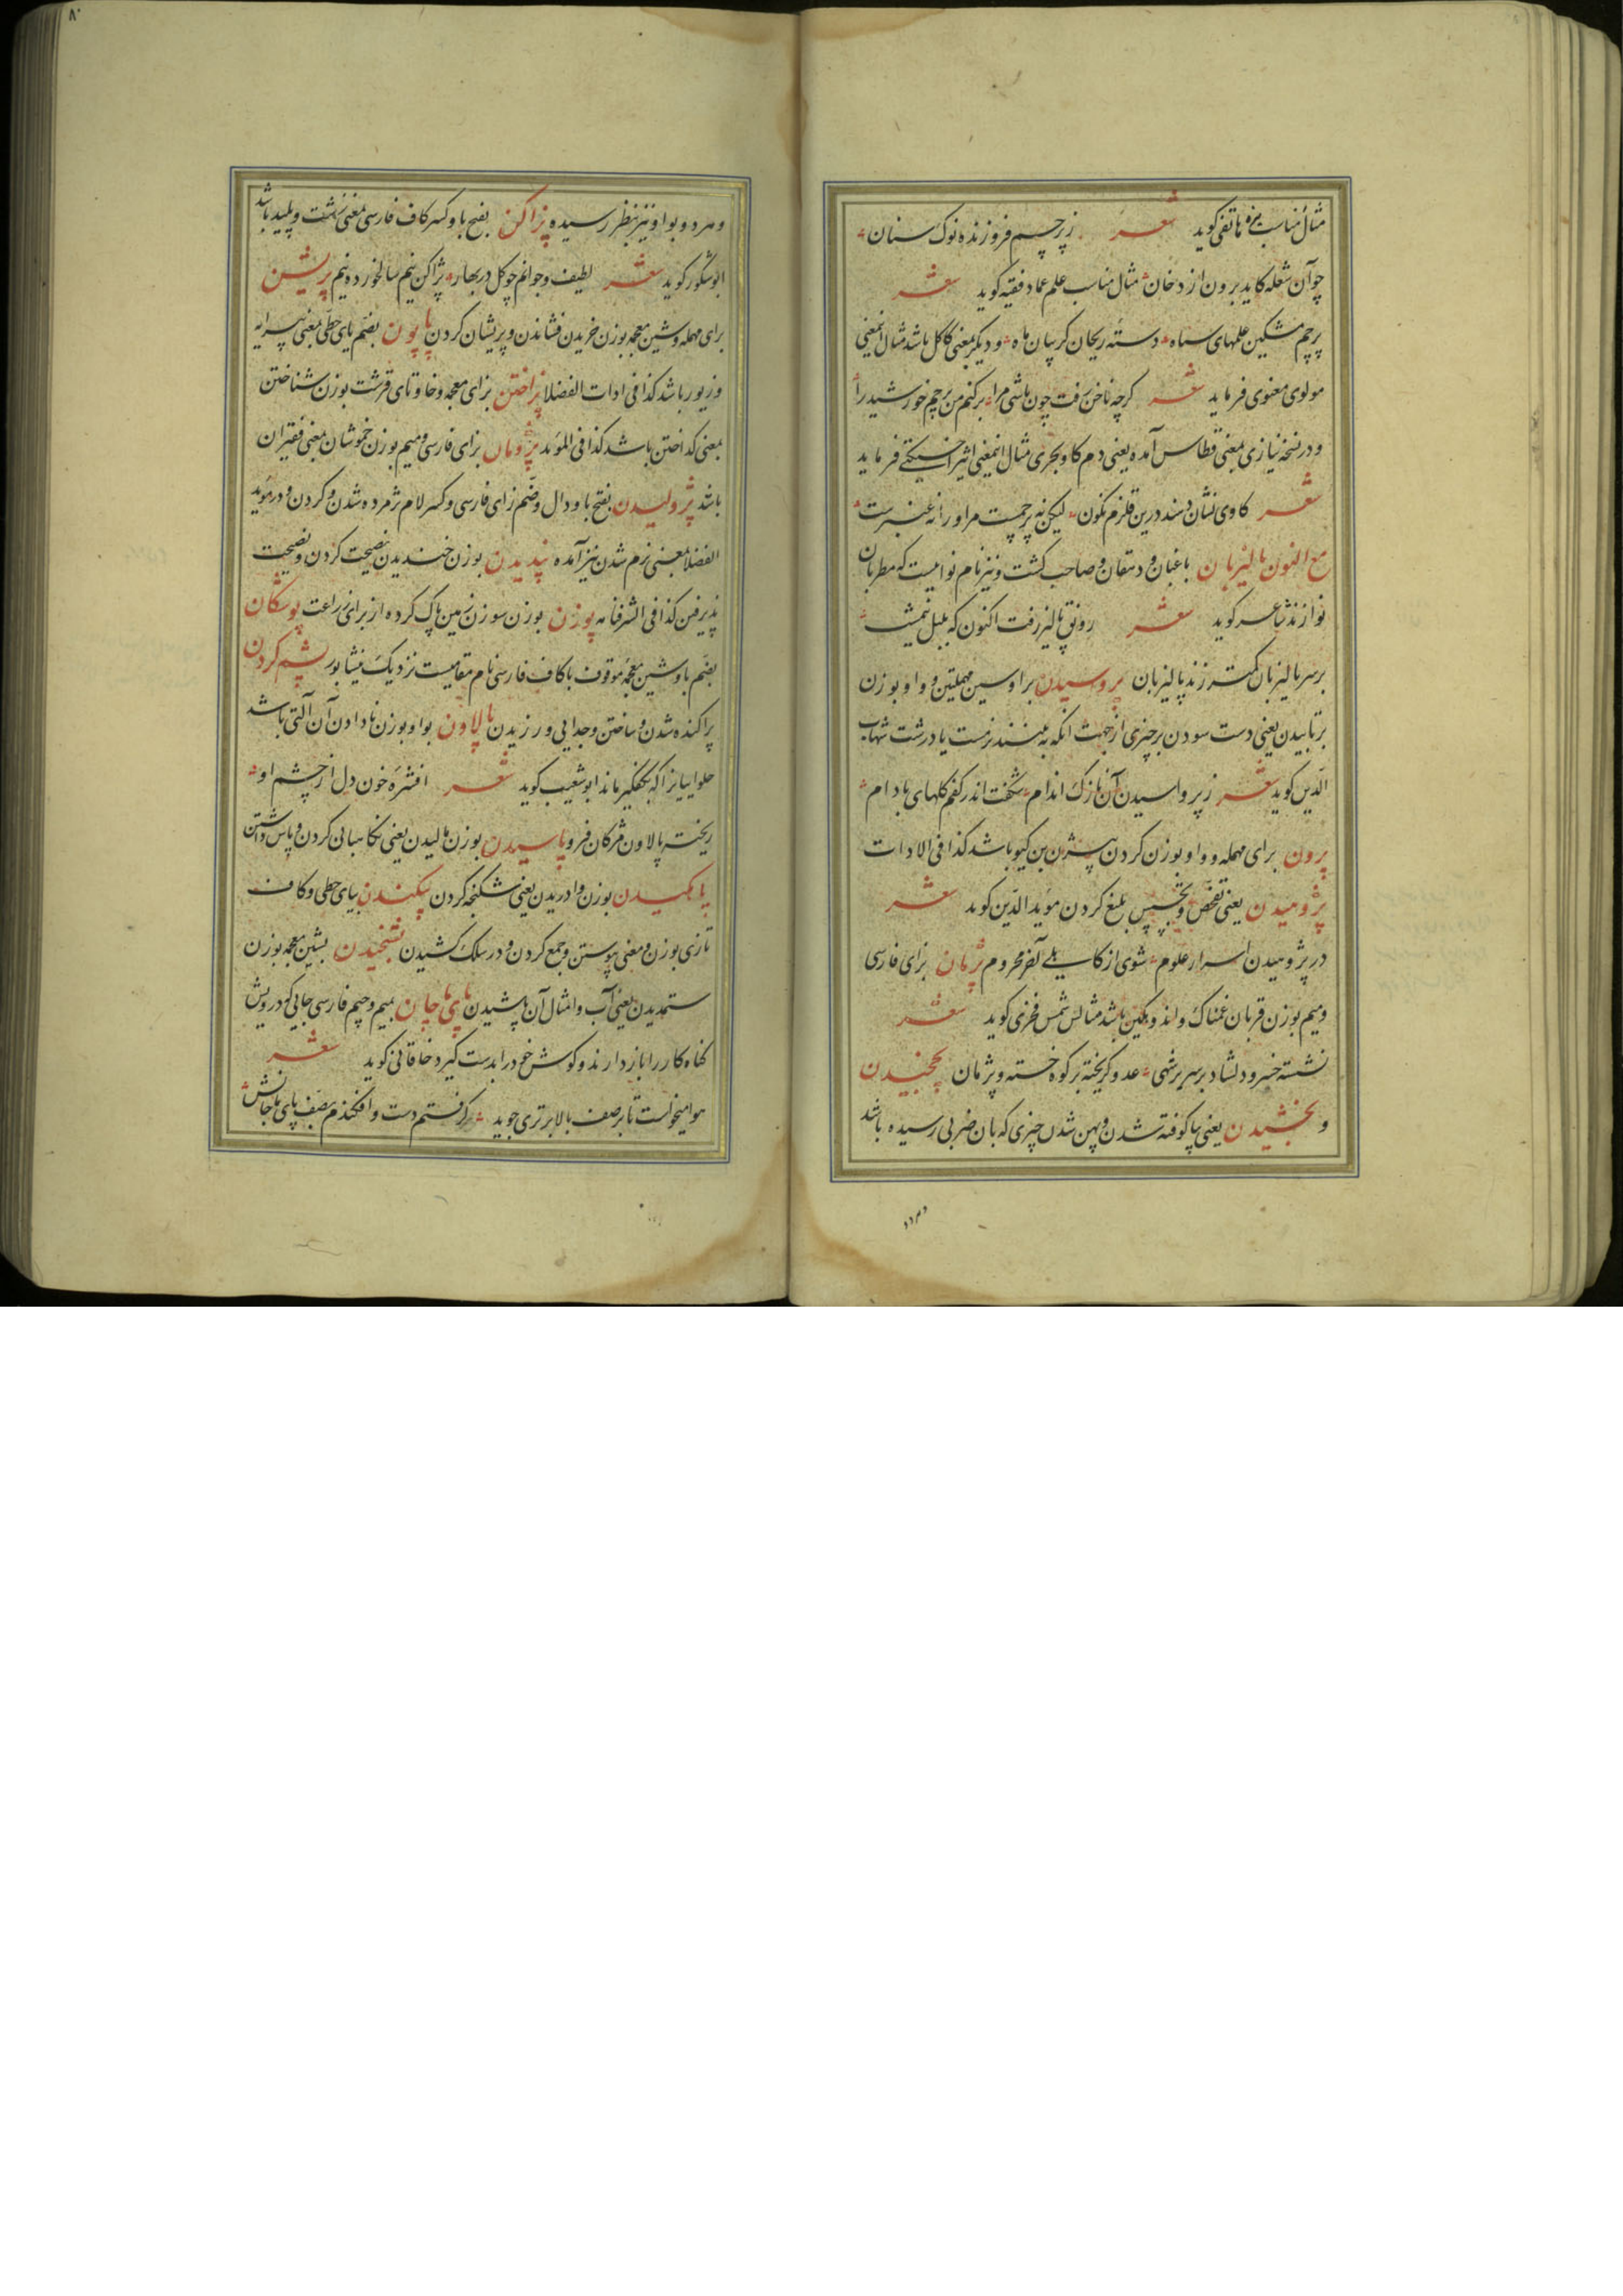 مثال مناسب نیزه هاتفی کوید شعر ز پرچم فروزنده نوک سنان
چو آن شعله کاید برون از دخان مثال مناسب علم عماد فقیه کوید شعر
پرچم مشکین علمهای سپاه دسته ریحان کریبان ماه و دیکر بمعنی کاکل باشد مثال انمعنی
مولوی معنوی فرماید شعر کرچه ناخن رفت چون باشی مرا برکنم من پرچم خورشید را
و در نسخه نیازی بمعنی قطاس آمده یعنی دم کاو بحری مثال انمعنی اثیر اخسیکتی فرماید
شعر کاوی نشان دهند درین قلزم نکون لیکن نه پرچمست مر او را نه عنبرست
مع النون پالیزبان باغبان و دهقان و صاحب کشت و نیز نام نواییست که مطربان
نوازند شاعر کوید شعر رونق پالیز رفت اکنون که بلبل نیمشب
بر سر پالیزبان کمتر زند پالیزبان پرواسیدن برا و سین مهملتین و واو بوزن
برتابیدن یعنی دست سودن بر چیزی از جهت انکه به بینند نرمست یا درشت شهاب
الدین کوید شعر ز پرواسیدن آن نازک اندام شکفت اندر کفم کلهای بادام
پرون برای مهمله و واو بوزن کردن پسر بیژن بن کیو باشد کذا فی الادات
پژوهیدن یعنی تفحص و تجسس بلیغ کردن موید الدین کوید شعر
در پژوهیدن اسرار علوم شوی از کاهلی آخر محروم پژمان برای فارسی
و میم بوزن قربان غمناک و اندوهکین باشد مثالش شمس فخری کوید شعر
نشسته خسرو دلشاد بر سریر شهی عدو کریخته بر کوه خسته و پژمان پخچیدن
و پخشیدن یعنی پا کوفته شدن و پهن شدن چیزی که بان ضربی رسیده باشد
و مردو
۸۰
و هر دو بواو نیز بنظر رسیده پژاکن بفتح با و کسر کاف فارسی بمعنی زشت و پلید باشد
ابو شکور کوید شعر لطیف و جوانم چو کل در بهار پژاکن نیم سالخورده نیم پریشن
برای مهمله و شین معجمه بوزن خریدن فشاندن و پریشان کردن پاپون بضم بای حطی بمعنی پیرایه
و زیور باشد کذا فی ادات الفضلا پزاختن برای معجمه و خا و تای قرشت بوزن شناختن
بمعنی کداختن باشد کذا فی الموید پژومان برای فارسی و میم بوزن خموشان بمعنی فقیران
باشد پژولیدن بفتح با و دال و ضم زای فارسی و کسر لام پژمرده شدن و کردن و در موید
الفضلا بمعنی نرم شدن نیز آمده پندیدن بوزن خندیدن نصیحت کردن و نصیحت
پذیرفتن کذا فی الشرفنامه پوزن بوزن سوزن زمین پاک کرده از برای زراعت پوشکان
بضم با و شین معجمه موقوف با کاف فارسی نام مقامیست نزدیک نیشابور پشم کردن
پراکنده شدن و ساختن و جدایی ورزیدن پالاون بواو بوزن نادادن آن آلتی باشد
حلواییانرا که بکفکیر ماند ابو شعیب کوید شعر افشره خون دل از چشم او
ریخته پالاون مژکان فرو پاسیدن بوزن مالیدن یعنی نکاهبانی کردن و پاس داشتن
بوزن وادریدن یعنی شکنجه کردن پیکندن بیای حطی و کاف
تازی بوزن و معنی پیوستن و جمع کردن و در سلک کشیدن پشنجیدن بشین معجمه بوزن
ستمدیدن یعنی آب و امثال آن پاشیدن پای ماچان بمیم و جیم فارسی جایی که درویش
کناه کار را بازدارند و کوش خود را بدست کیرد خاقانی کوید شعر
هوا میخواست تا بر صف بالا برتری جوید کرفتم دست و افکندم بصف پای ماچانش